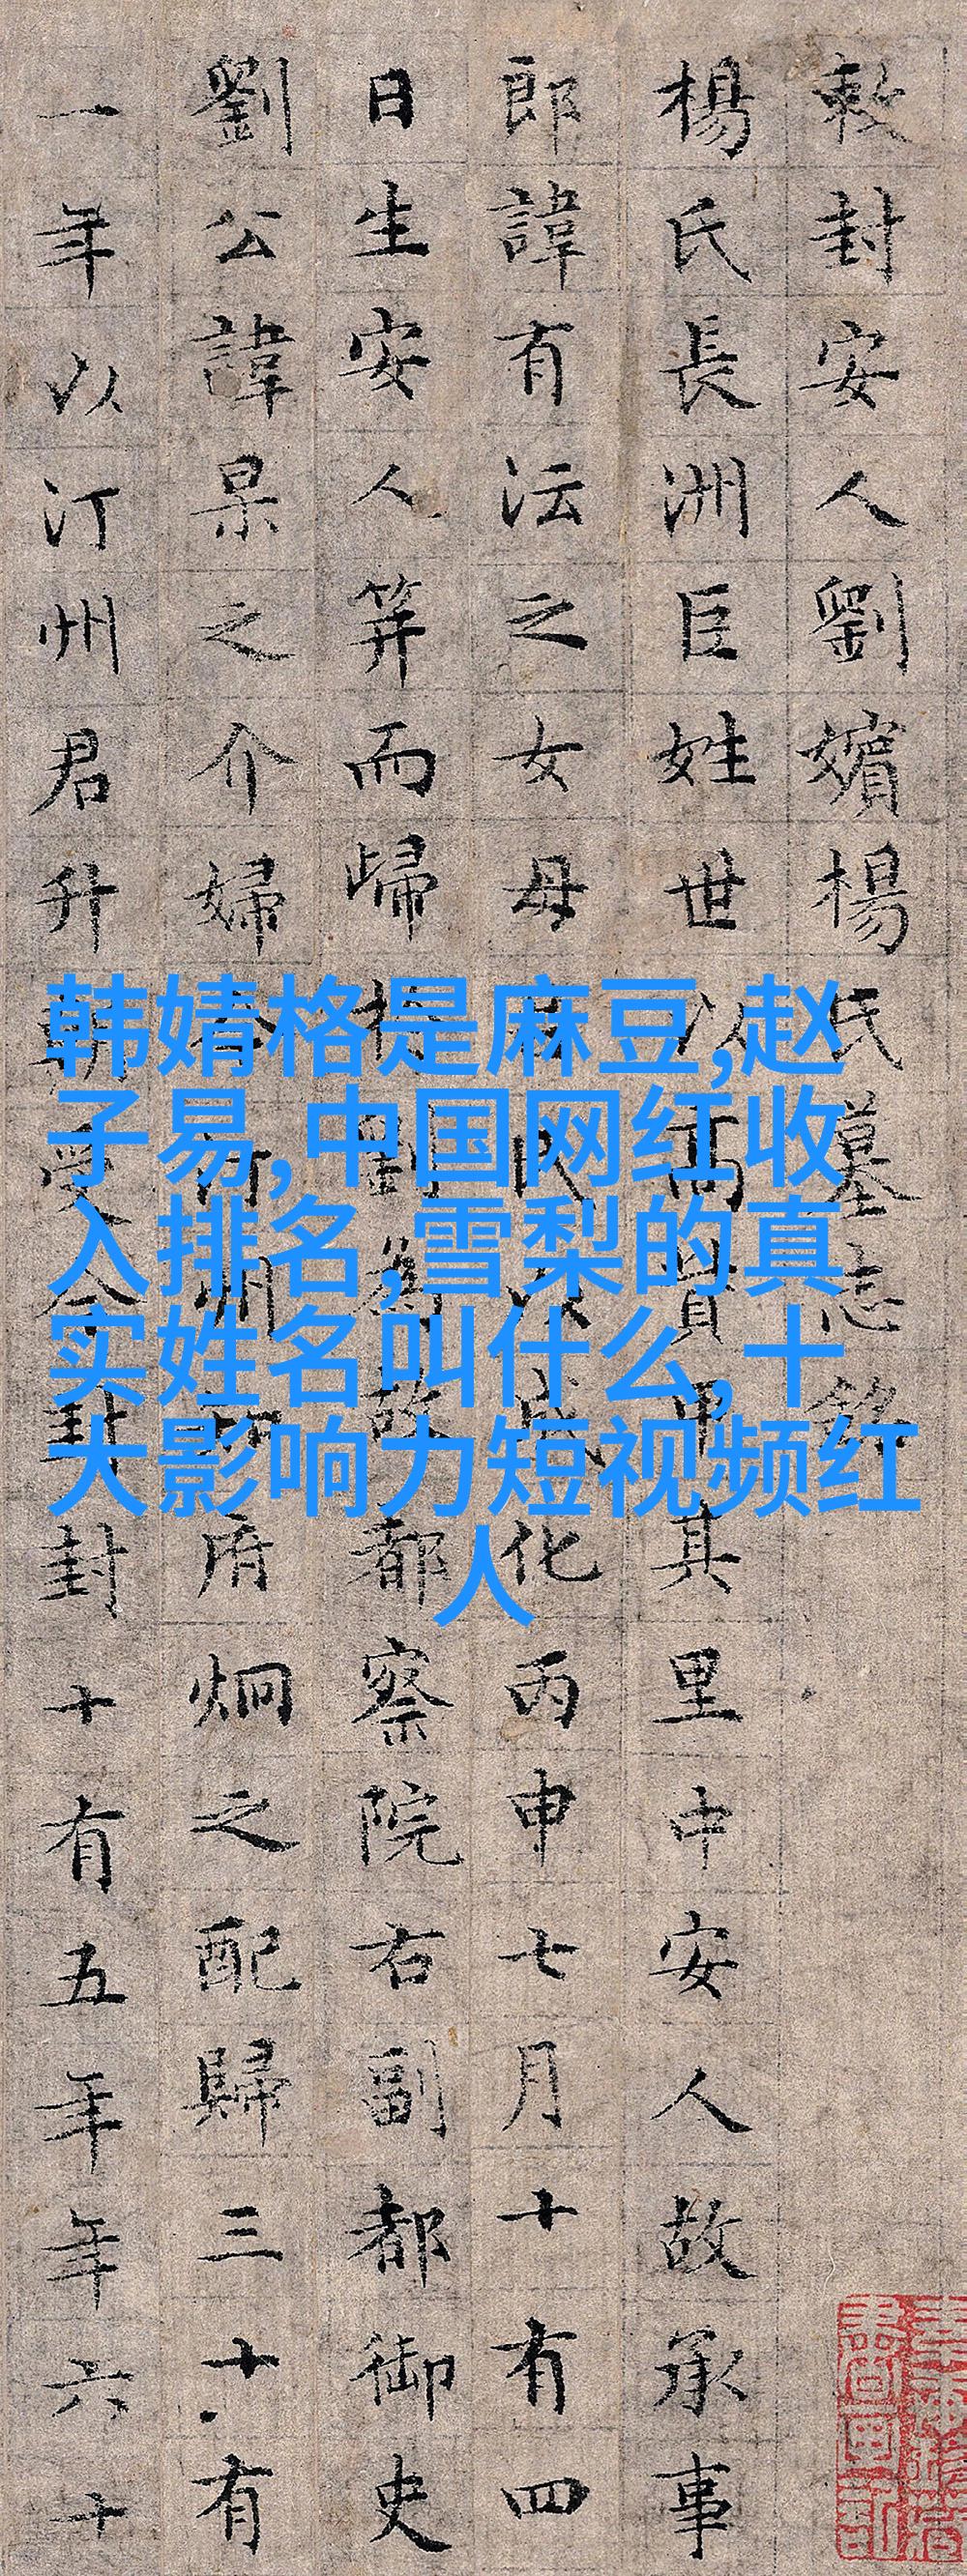 敕封安人劉嬪楊氏墓志銘
楊氏長洲巨姓世以高貴甲其里中安人故承事
郎諱有沄之女母氏以成化丙申七月十有四
日生安人笄而歸於劉為故都察院右副都御史
劉公諱杲之介婦今汀州知府炯之配歸三十有
一年以汀州君升朝受今封封十有五年年六十
韩婧格是麻豆,赵
子易,中国网红收
入排名,雪梨的真
实姓名叫什么,十
大影响力短视频红
人